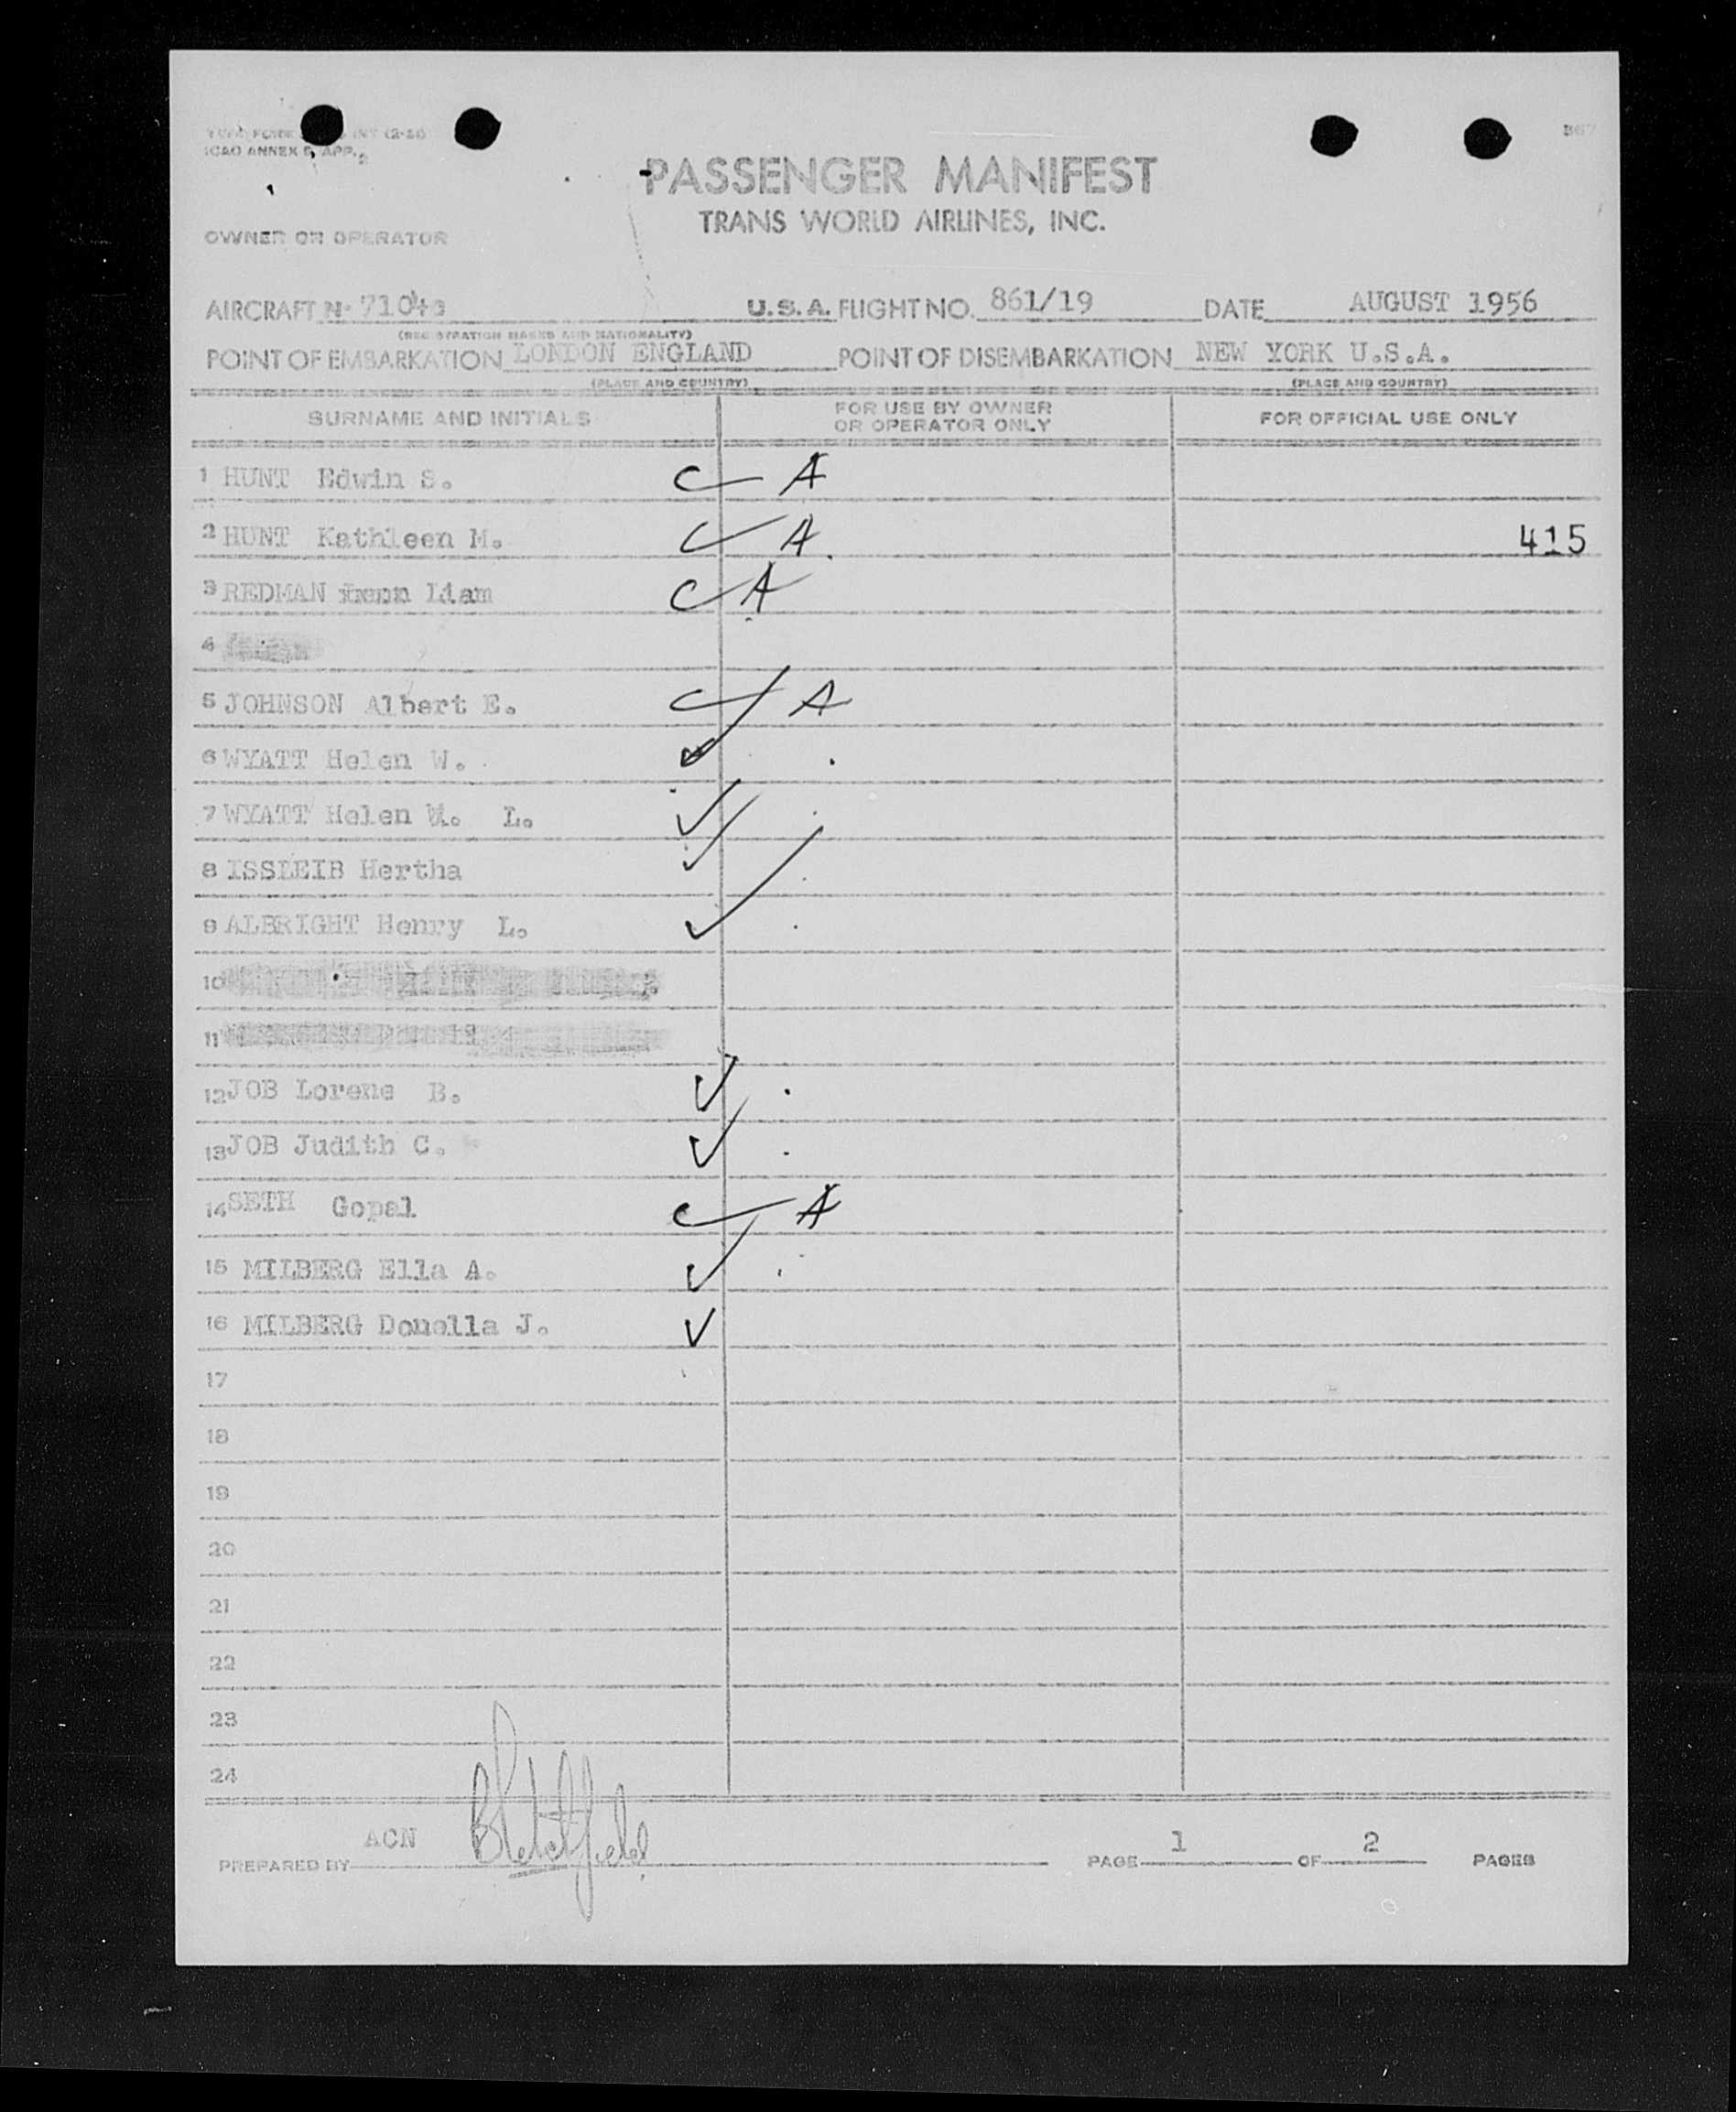 ICAO ANNEX 9, APP. 2
PASSENGER MANIFEST
TRANS WORLD AIRLINES, INC.
OWNER OR OPERATOR
AIRCRAFT N- 7104 U.S.A. FLIGHT NO. 861/19 DATE AUGUST 1956
(REGISTRATION MARKS AND NATIONALITY)
POINT OF EMBARKATION LONDON ENGLAND POINT OF DISEMBARKATION NEW YORK U.S.A.
(PLACE AND COUNTRY) (PLACE AND COUNTRY)
SURNAME AND INITIALS FOR USE BY OWNER OR OPERATOR ONLY FOR OFFICIAL USE ONLY
1 HUNT Edwin S. C A
2 HUNT Kathleen M. A. 415
3 REDMAN Liam C A
4
5 JOHNSON Albert E. C A
6 WYATT Helen W.
7 WYATT Helen L.
8 ISSLEIB Hertha
9 ALBRIGHT Henry L.
10
11
12 JOB Lorene B.
13 JOB Judith C.
14 SETH Gopal C A
15 MILBERG Ella A.
16 MILBERG Donella J.
17
18
19
20
21
22
23
24
PREPARED BY ACN PAGE 1 OF 2 PAGES